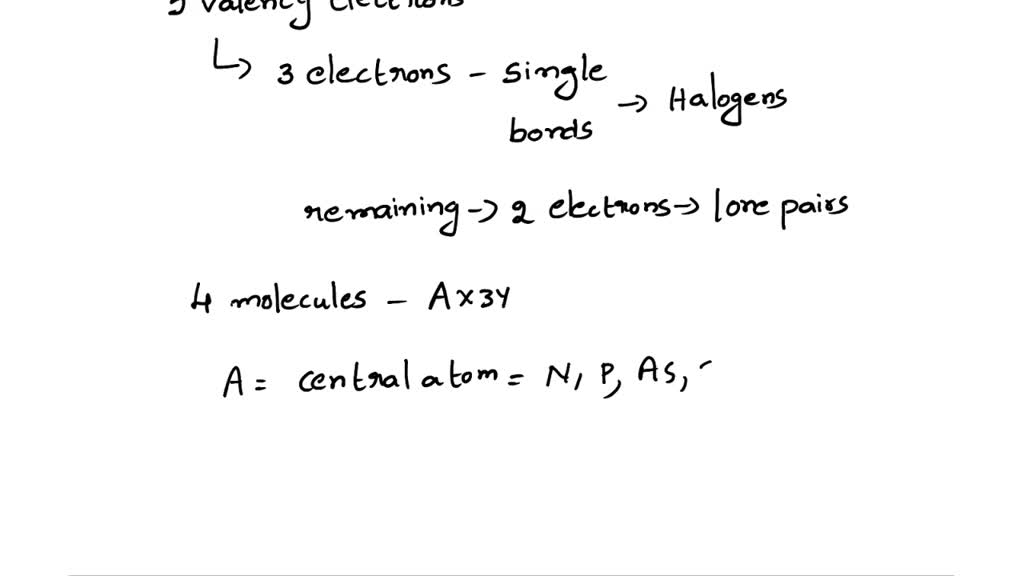 5 valency electrons
↳ 3 electrons - single bonds → Halogens
remaining → 2 electrons → lone pairs
4 molecules - AX3Y
A = central atom = N, P, As,